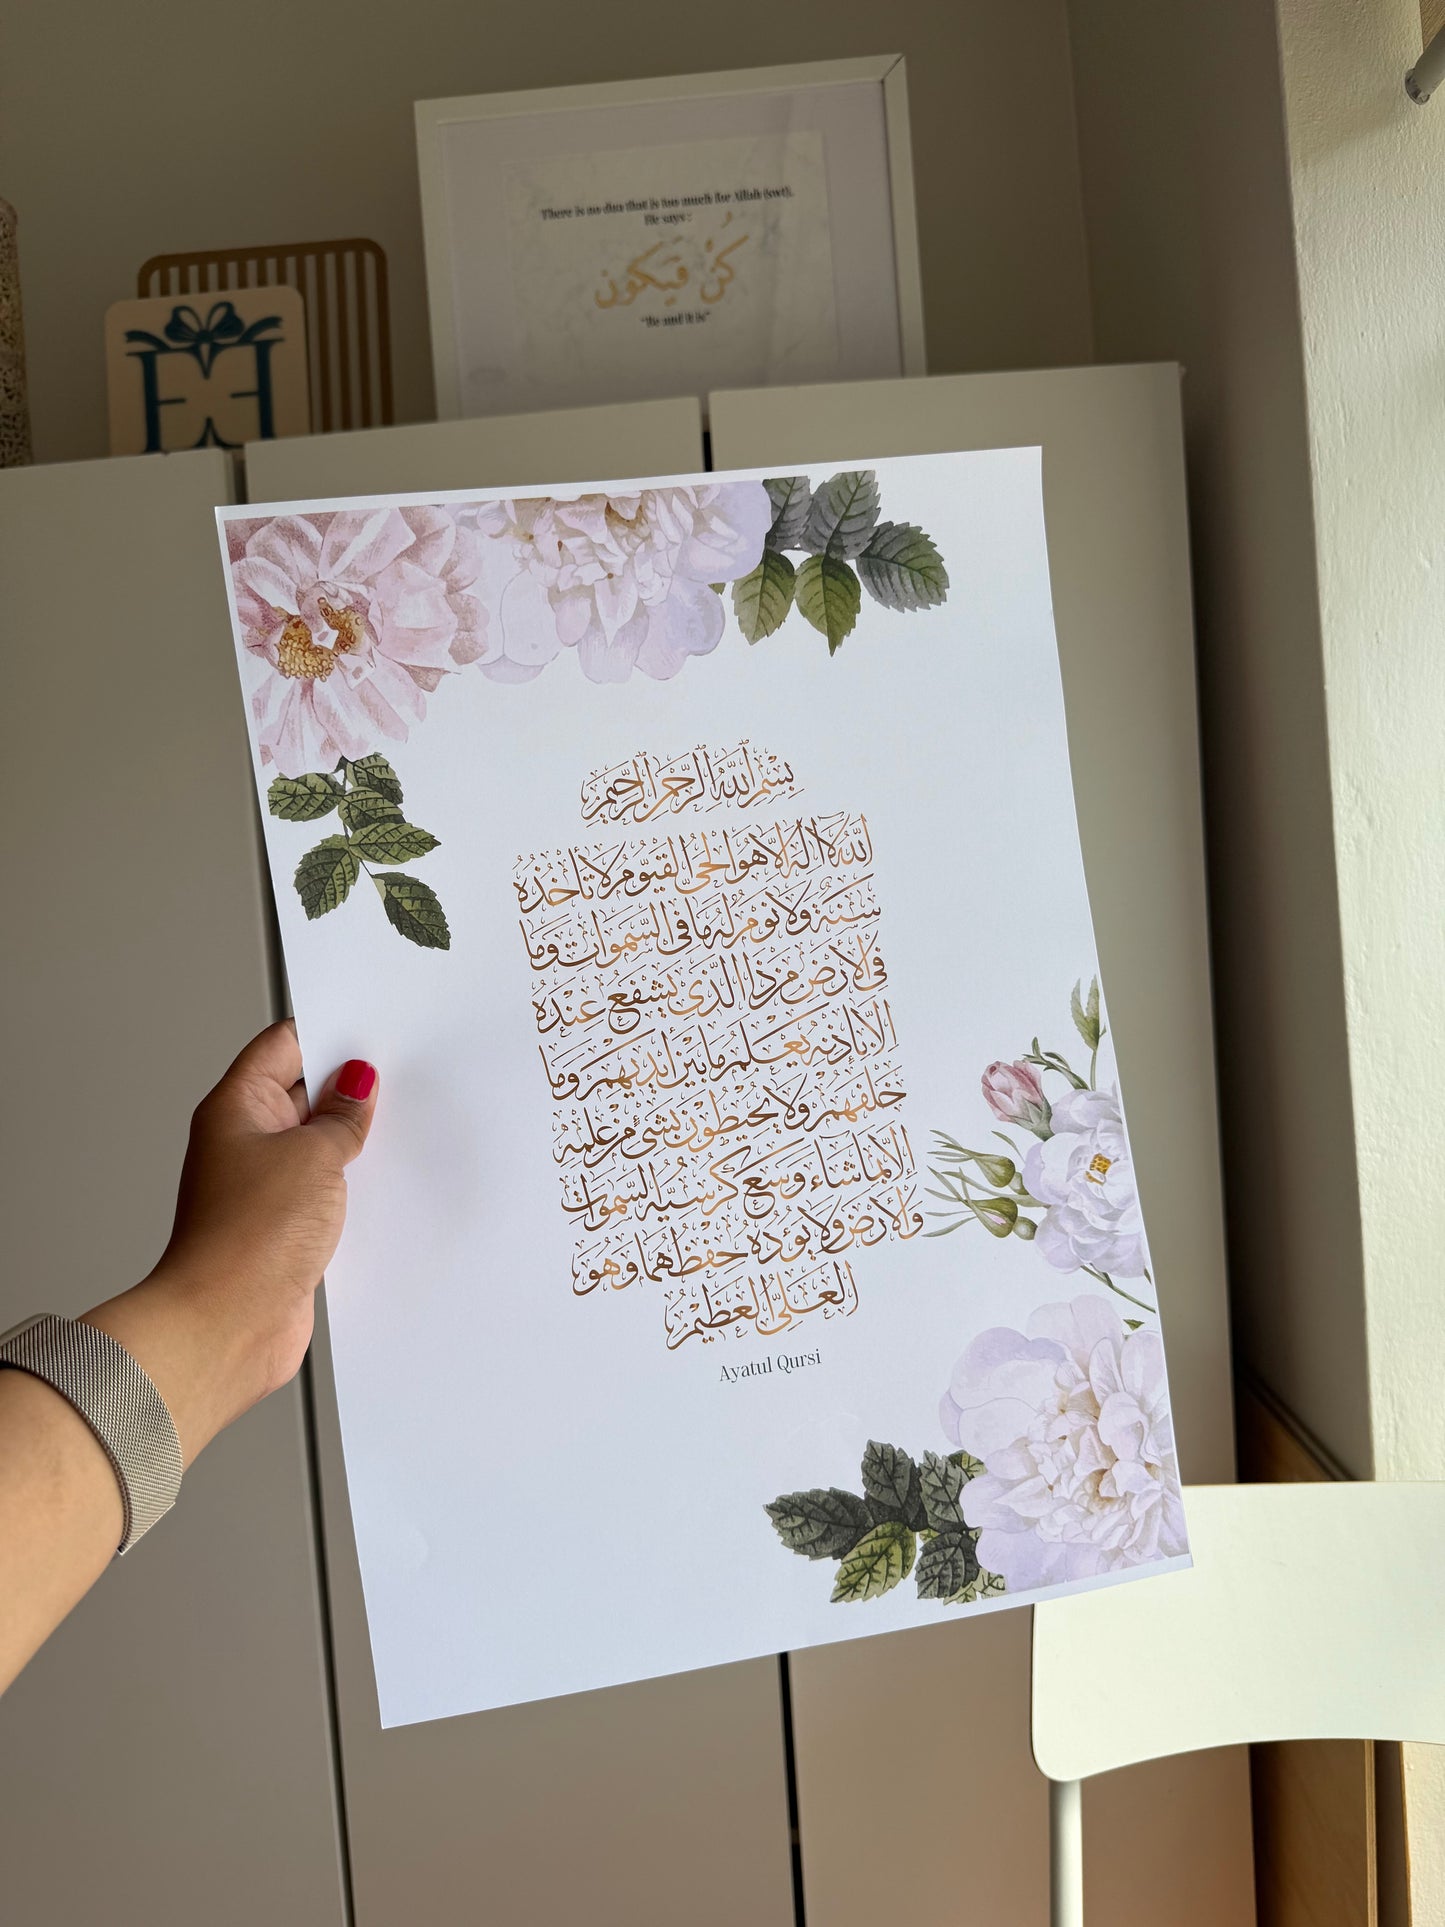 There is no dua that is too much for Allah (swt).
He says :
كُنْ فَيَكُون
"Be and it is"
بِسْمِ ٱللَّهِ ٱلرَّحْمَٰنِ ٱلرَّحِيمِ
اَللّٰهُ لَآ اِلٰهَ اِلَّا هُوَ الْحَيُّ الْقَيُّوْمُ لَا تَأْخُذُهُ
سِنَةٌ وَلَا نَوْمٌ لَهُ مَا فِي السَّمٰوَاتِ وَمَا
فِي الْأَرْضِ مَنْ ذَا الَّذِي يَشْفَعُ عِنْدَهُ
اِلَّا بِإِذْنِهِ يَعْلَمُ مَا بَيْنَ أَيْدِيهِمْ وَمَا
خَلْفَهُمْ وَلَا يُحِيْطُوْنَ بِشَيْءٍ مِنْ عِلْمِهِ
إِلَّا بِمَا شَآءَ وَسِعَ كُرْسِيُّهُ السَّمٰوَاتِ
وَالْأَرْضَ وَلَا يَؤُدُهُ حِفْظُهُمَا وَهُوَ
الْعَلِيُّ الْعَظِيْمُ
Ayatul Qursi